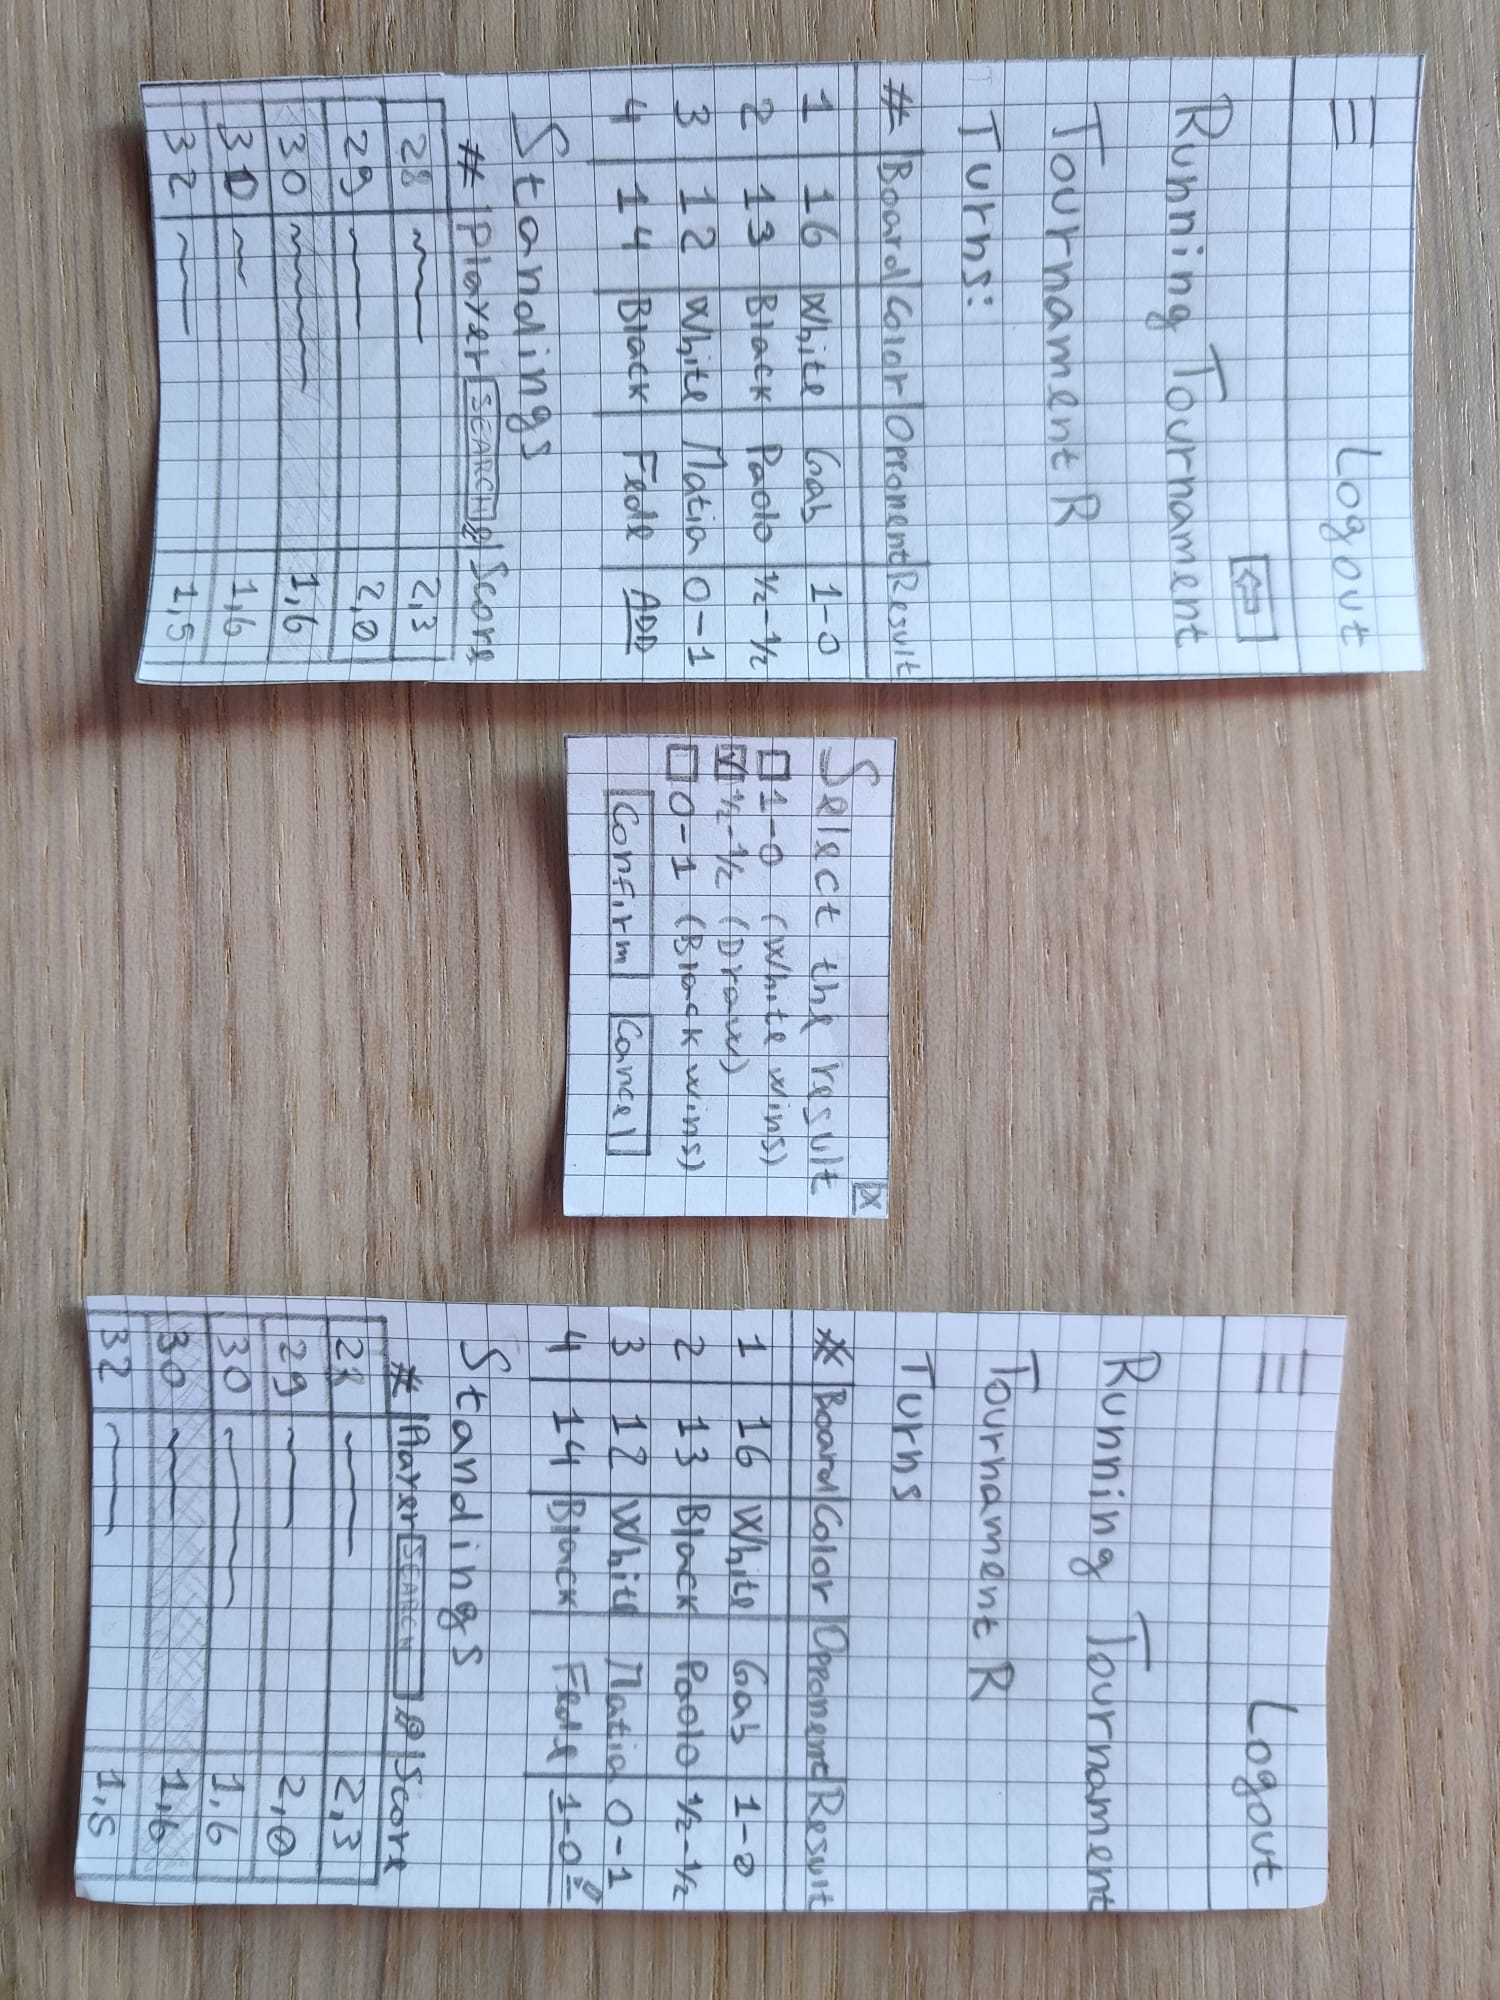 Logout
Running Tournament
Tournament R
Turns:
# Board Color Opponent Result
1 16 White Gab 1-0
2 13 Black Paolo 1/2-1/2
3 12 White Matia 0-1
4 14 Black Fede ADD
Standings
# Player SEARCH Score
28 2,3
29 2,0
30 1,6
30 1,6
32 1,5
X
Select the result
1-0 (White wins)
1/2-1/2 (Draw)
0-1 (Black wins)
Confirm Cancel
Logout
Running Tournament
Tournament R
Turns
# Board Color Opponent Result
1 16 White Gab 1-0
2 13 Black Paolo 1/2-1/2
3 12 White Matia 0-1
4 14 Black Fede 1-0
Standings
# Player SEARCH Score
28 2,3
29 2,0
30 1,6
30 1,6
32 1,5